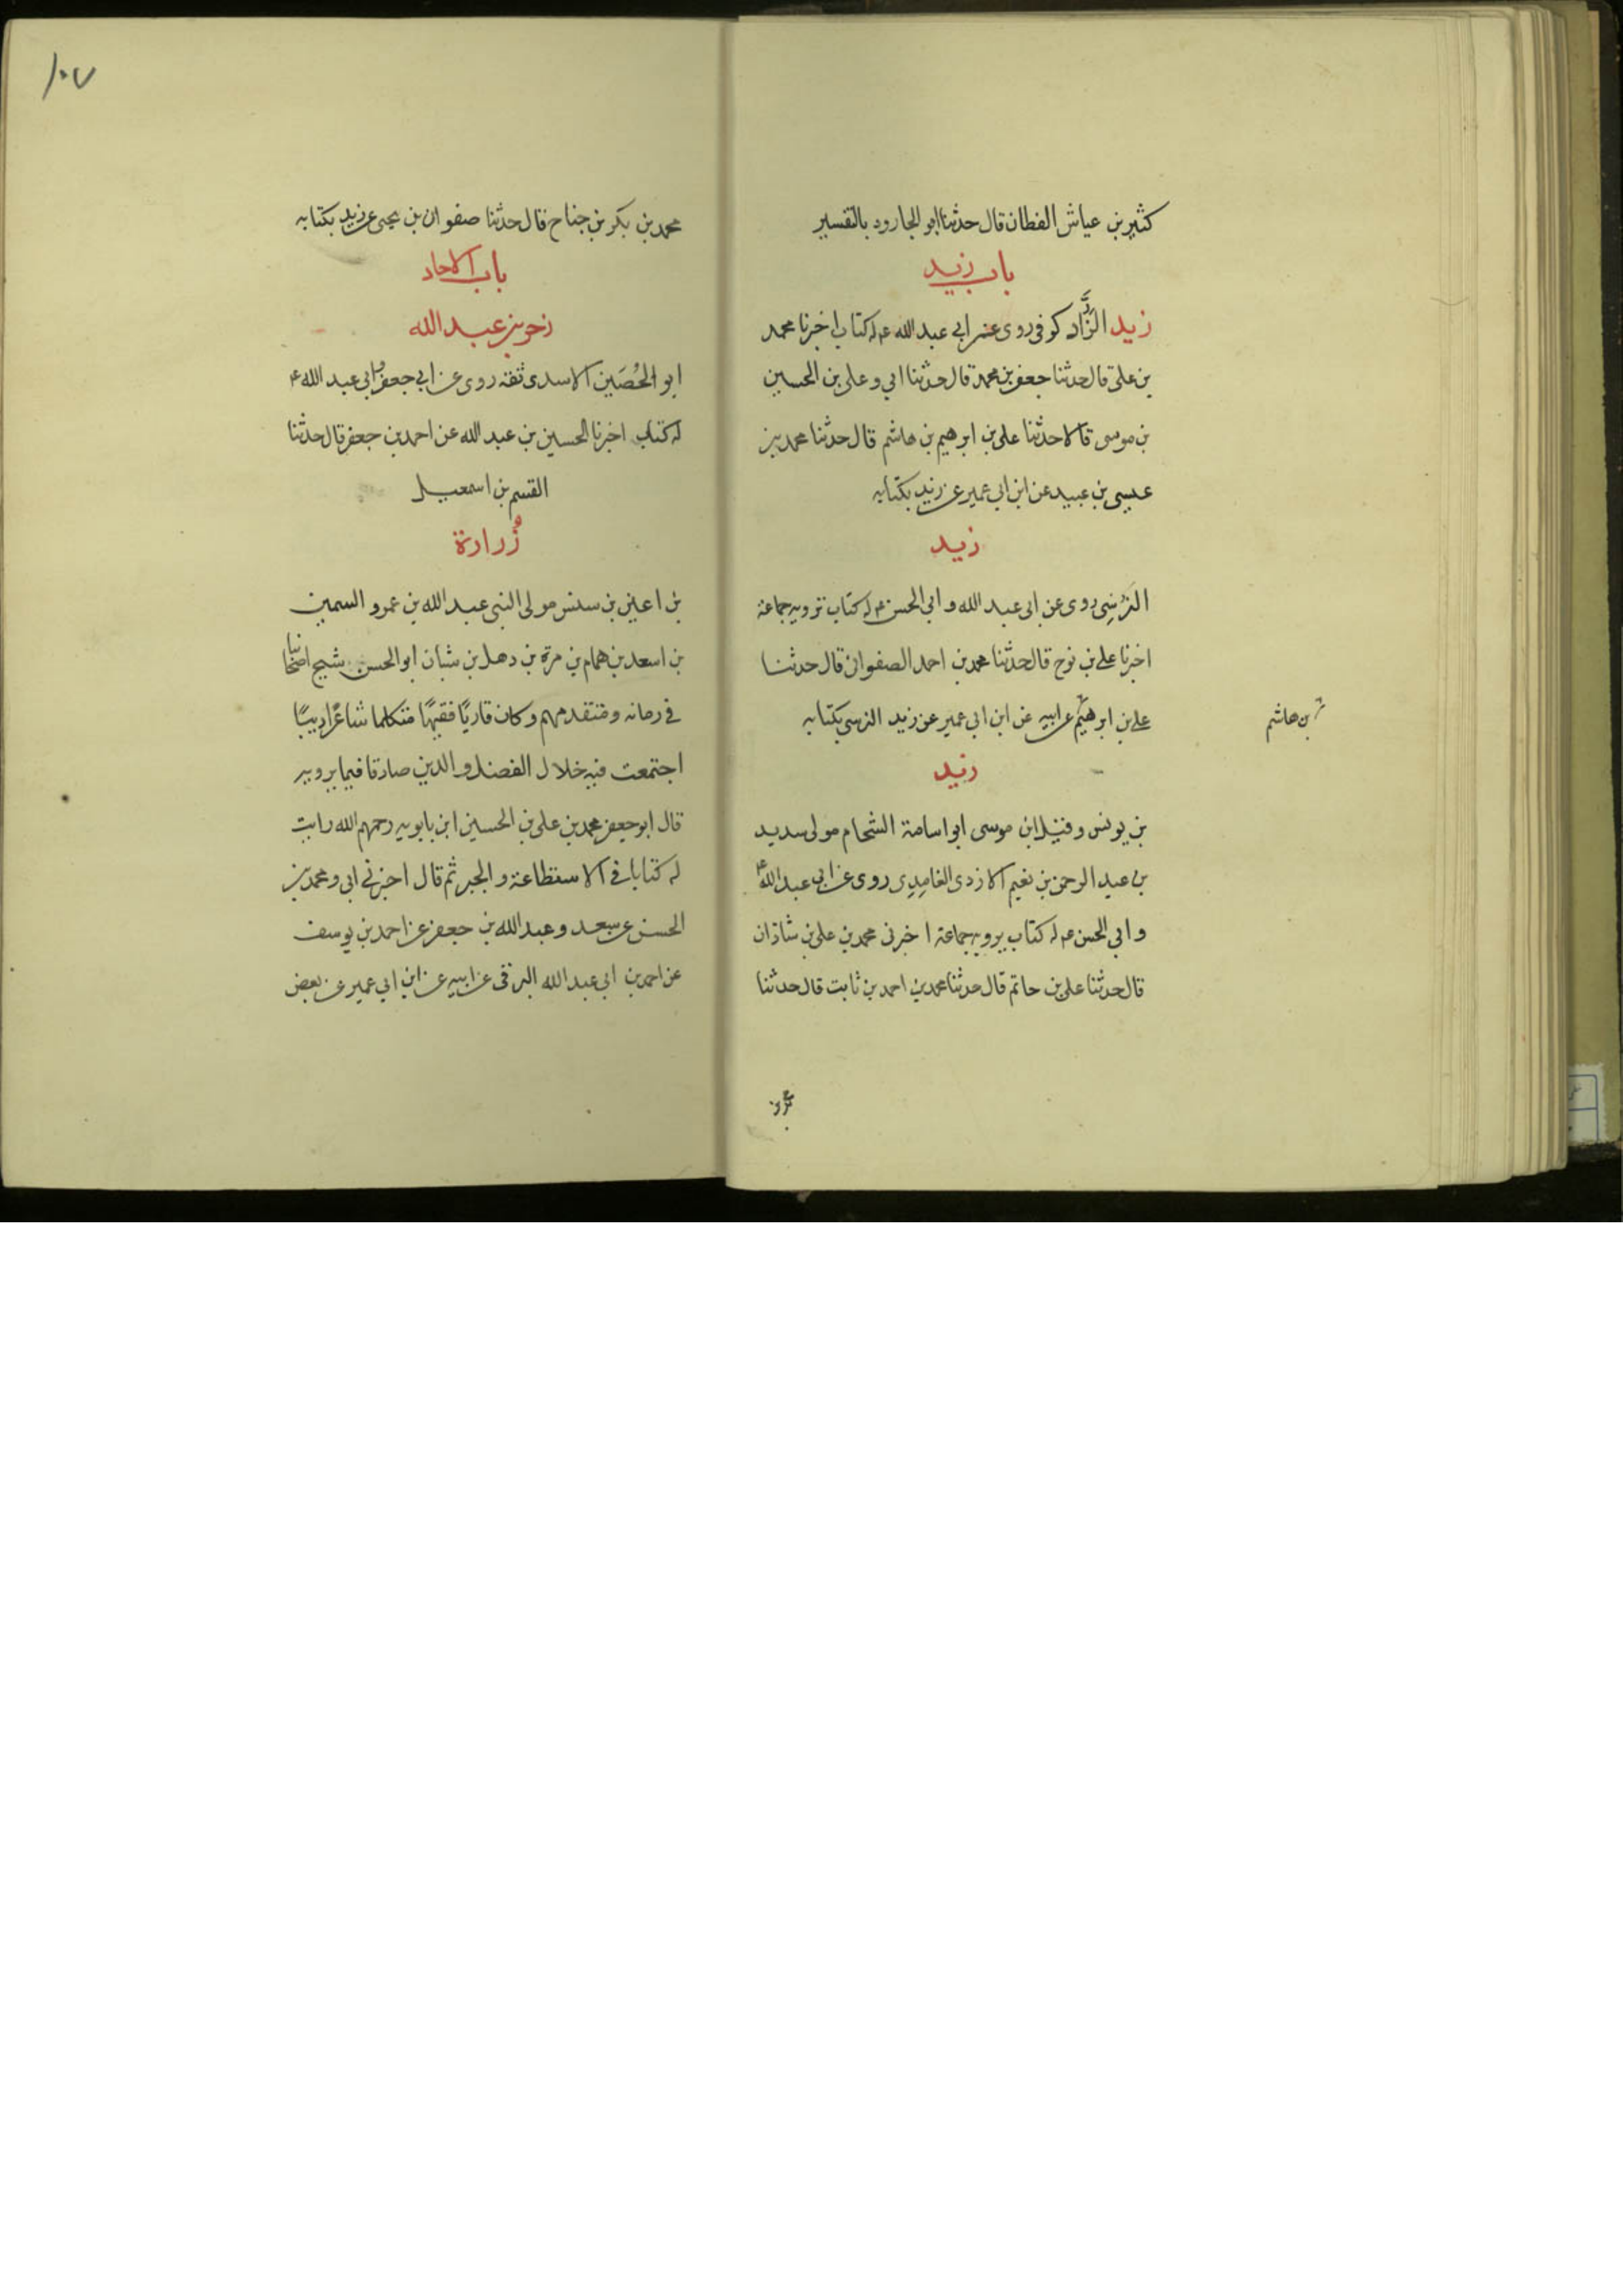 كثير بن عياش القطان قال حدثنا ابو الجارود بالتفسير
باب زيد
زيد الزَّرَّاد كوفي روى عن ابي عبد الله ع له كتاب اخبرنا محمد
بن علي قال حدثنا جعفر بن محمد قال حدثنا ابي وعلي بن الحسين
بن موسى قالا حدثنا علي بن ابرهيم بن هاشم قال حدثنا محمد بن
عيسى بن عبيد عن ابن ابي عمير عن زيد بكتابه
زيد
النَرْسِي روى عن ابي عبد الله و ابي الحسن ع له كتاب ترويه جماعة
اخبرنا علي بن نوح قال حدثنا محمد بن احمد الصفواني قال حدثنا
علي بن ابرهيم عن ابيه عن ابن ابي عمير عن زيد النرسي بكتابه
بن هاشم
زيد
بن يونس وقيل ابن موسى ابو اسامة الشحام مولى سديد
بن عبد الرحمن بن نعيم الازدى الغامِدِى روى عن ابي عبد الله ع
و ابي الحسن ع له كتاب يرويه جماعة اخبرني محمد بن علي بن شاذان
قال حدثنا علي بن حاتم قال حدثنا محمد بن احمد بن ثابت قال حدثنا
محمد بن
١٠٧
محمد بن بكر بن جناح قال حدثنا صفوان بن يحيى عن زيد بكتابه
باب الاحاد
زحر بن عبد الله
ابو الحُصَين الاسدى ثقة روى عن ابي جعفر وابي عبد الله ع
له كتاب اخبرنا الحسين بن عبد الله عن احمد بن جعفر قال حدثنا
القسم بن اسمعيل
زُرارة
بن اعين بن سنسن مولى النبى عبد الله بن عمرو السمين
بن اسعد بن همام بن مرة بن دهل بن شبان ابو الحسن شيخ اصحابنا
في زمانه ومتقدمهم وكان قاريًا فقيهًا متكلما شاعرًا اديبًا
اجتمعت فيه خلال الفضل والدين صادقا فيما يرويه
قال ابو جعفر محمد بن علي بن الحسين ابن بابويه رحمهم الله رايت
له كتابا في الاستطاعة والجبر ثم قال اخبرني ابي ومحمد بن
الحسن عن سعد وعبد الله بن جعفر عن احمد بن يوسف
عن احمد بن ابي عبد الله البرقى عن ابيه عن ابن ابي عمير عن بعض